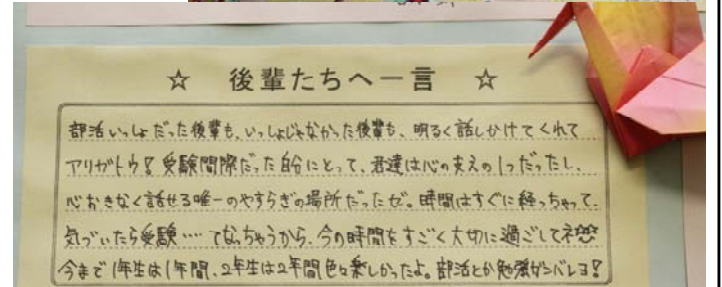 ☆ 後輩たちへ一言 ☆
部活いっしょだった後輩も、いっしょじゃなかった後輩も、明るく話しかけてくれて
アリガトウ!! 受験間際だった自分にとって、君達は心の支えの1つだったし、
心おきなく話せる唯一のやすらぎの場所だったゼ。時間はすぐに経っちゃって、
気づいたら受験…‥てなっちゃうから、今の時間をすごく大切に過ごしてネ
今まで1年生は1年間、2年生は2年間色々楽しかったよ。部活とか勉強ガンバレヨ!!